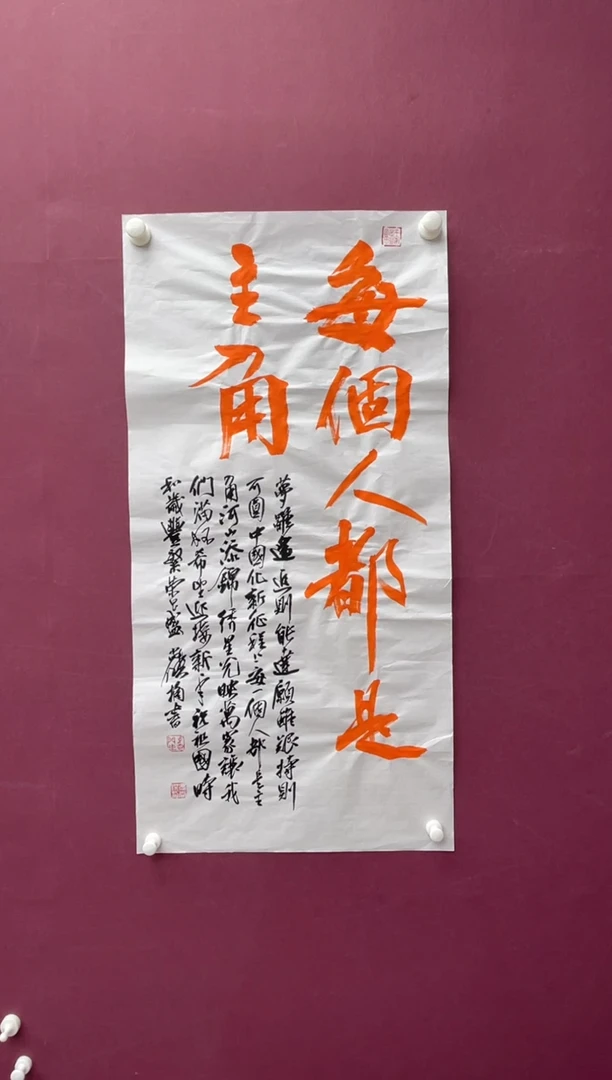 每個人都是
主角
夢雖遙追則能達願雖艱持則
可圓中國化新征程上每一個人都是主
角河山添錦綉星光映萬家讓我
們滿懷希望迎接新年祝祖國時
和歲豐繁榮昌盛 書